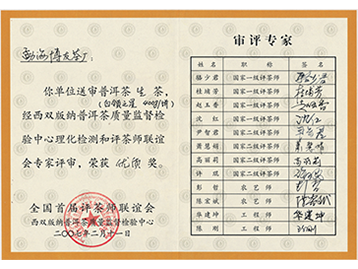 勐海博友茶厂:
你单位送审普洱茶 生 茶,
经西双版纳普洱茶质量监督检
验中心理化检测和评茶师联谊
会专家评审,荣获 优质 奖。
全国首届评茶师联谊会
西双版纳普洱茶质量监督检验中心
二〇〇七年二月十一日
审评专家
姓名 职称 签名
骆少君 国家一级评茶师
桂埔芳 国家一级评茶师
赵玉香 国家一级评茶师
沈红 国家一级评茶师 沈红
尹智君 国家二级评茶师
萧慧娟 国家二级评茶师
高丽莉 国家二级评茶师 高丽莉
许琨 国家二级评茶师
彭哲 农艺师
陈宏斌 农艺师
华建坤 工程师 华建坤
陈刚 工程师